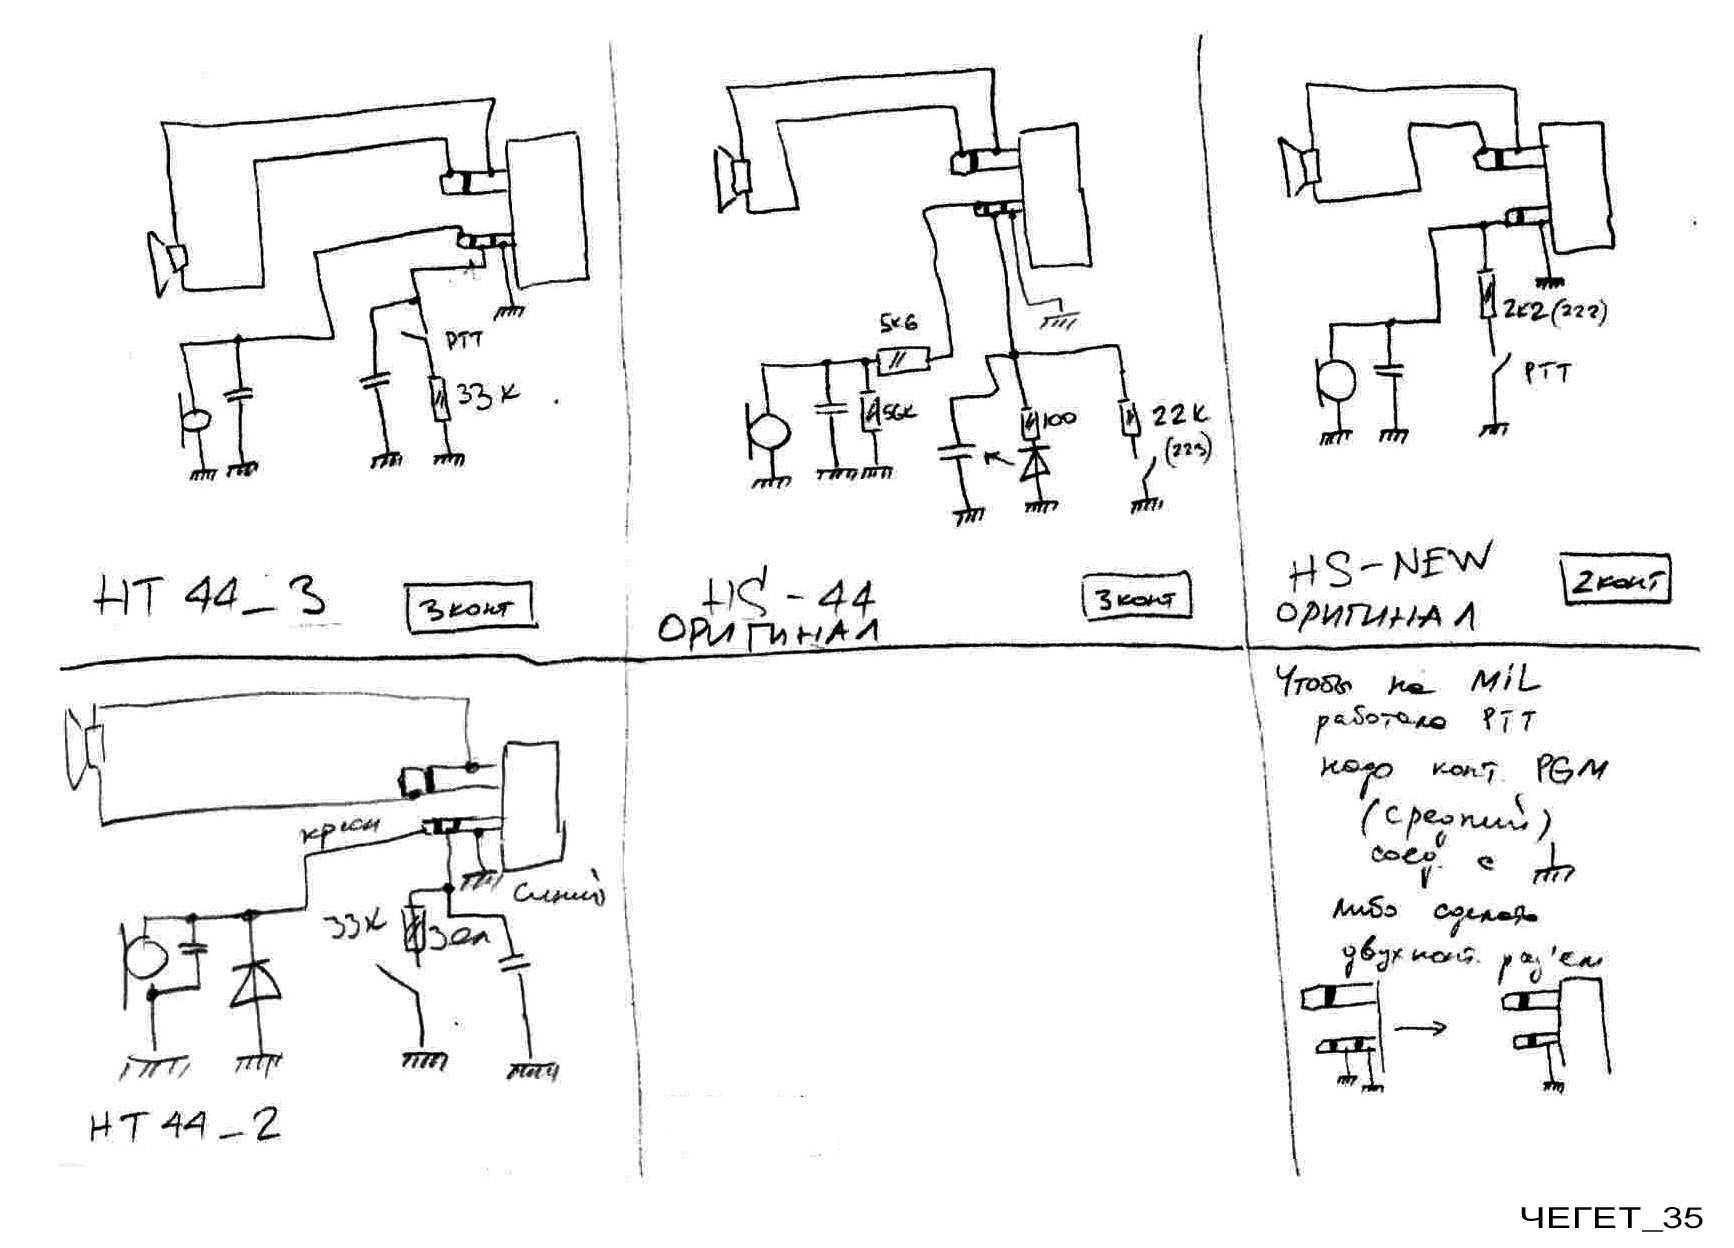 PTT
33K
HT 44_3
3 конт
5K6
56K
100
22K
(223)
HS-44
ОРИГИНАЛ
3 конт
2K2 (222)
PTT
HS-NEW
ОРИГИНАЛ
2 конт
красн
синий
33K
зел
HT 44_2
Чтобы на MIL
работала PTT
надо конт. PGM
(средний)
соед. с
либо сделать
двухконт. раз'ем
ЧЕГЕТ_35